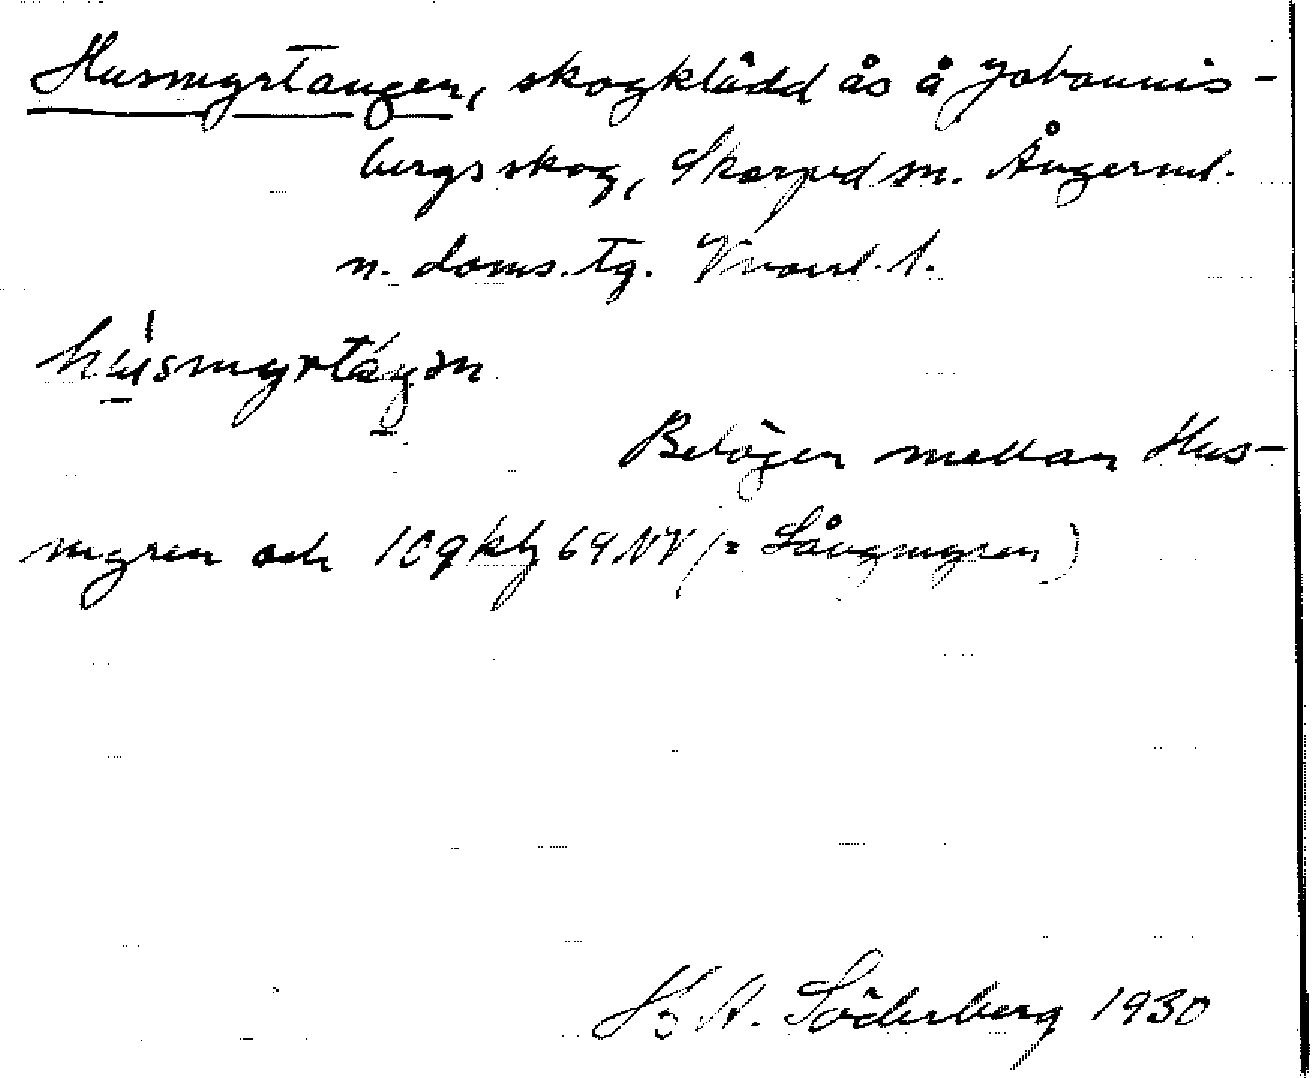 Husmyrtangen, skogklädd ås å Johannis-
bergsskog, Skorped sn. Ångerml.
n. doms.tg. Vnorrl. l.
husmyrtaŋən
Belägen mellan Hus-
myren och 109 klg 69 NV (= Långmyren)
K. A. Söderberg 1930